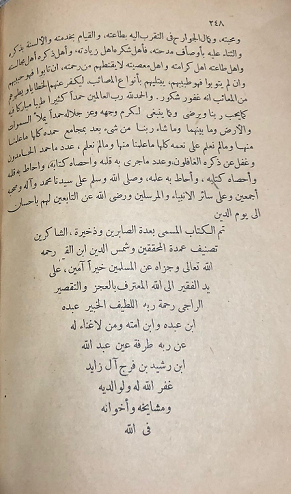 ٢٤٨
ومحبته، ونال الجوارح في التقرب اليه بطاعته، والقيام بخدمته والالسنة بذكره
والثناء عليه بأوصاف مدحته، فأهل شكره اهل زيادته، وأهل ذكره اهل مجالسته
واهل طاعته اهل كرامته واهل معصيته لايقنطهم من رحمته، ان تابوا فهو حبيبهم
وان لم يتوبوا فهو طبيبهم، يبتليهم بأنواع المصائب، ليكفر عنهم الخطايا ويطهرهم
من المعائب انه غفور شكور. والحمدلله رب العالمين حمداً كثيرا طيبا مباركا فيه
كما يحب ربنا ويرضى وكما ينبغي لكرم وجهه وعز جلاله حمداً يملأ السموات
والأرض وما بينهما وما شاء ربنا من شيء بعد بمجامع حمده كلها ماعلمنا
منها ومالم نعلم على نعمه كلها ماعلمنا منها ومالم نعلم، عدد ماحمد الحامدون
وغفل عن ذكره الغافلون وعدد ماجرى به قلمه واحصاه كتابه واحاط به علمه
وأحصاه كتابه، وأحاط به علمه، وصلى الله وسلم على سيدنا محمد وآله وصحبه
أجمعين وعلى سائر الانبياء والمرسلين ورضى الله عن التابعين لهم باحسان
الى يوم الدين
تم الكتاب المسمى بعدة الصابرين وذخيرة الشاكرين
تصنيف عمدة المحققين وشمس الدين ابن القيم رحمه
الله تعالى وجزاه عن المسلمين خيراً آمين، على
يد الفقير الى الله المعترف بالعجز والتقصير
الراجي رحمة ربه اللطيف الخبير عبده
ابن عبده وابن امته ومن لاغناء له
عن ربه طرفة عين عبد الله
ابن رشيد بن فرج آل زايد
غفر الله له ولوالديه
ومشايخه وأخوانه
في الله